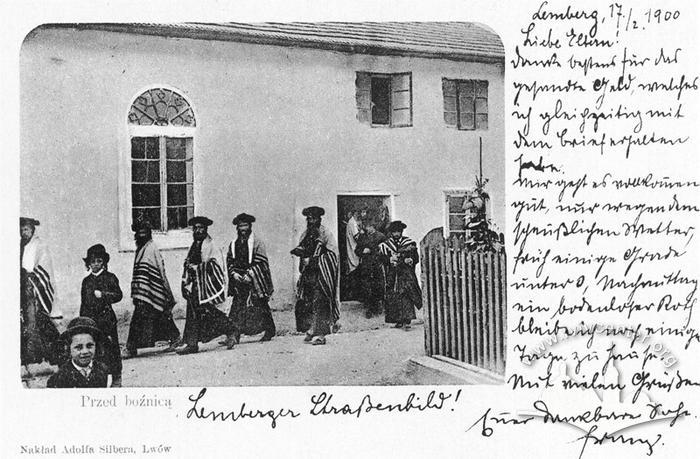 Lemberg, 17./2. 1900
Liebe Eltern!
Danke bestens für das
gesandte Geld, welches
ich gleichzeitig mit
dem Brief erhalten
habe.
Mir geht es vollkommen
gut, nur wegen dem
scheußlichen Wetter,
früh einige Grade
unter 0, Nachmittag
ein bodenloser Koth
bleibe ich noch einige
Tage zu Hause.
Mit vielen Grüßen
Euer dankbarer Sohn
Franz.
Przed bożnicą
Lemberger Straßenbild!
Nakład Adolfa Silbera, Lwów